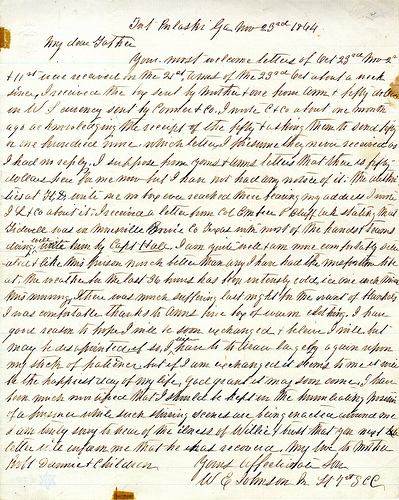 Fort Pulaski Ga Nov 23rd 1864
My dear Father
Your most welcome letters of Oct 23rd Nov 2d
& 11th were received on the 21st, Anns of the 23rd Oct about a week
since, I received the box sent by Mother & one from Ann & fifty dollars
in U S currency sent by & Co. I wrote C & Co about one month
ago acknowledging the receipt of the fifty & asking them to send fifty
or one hundred more which letter I presume they never received as
I had no reply. I suppose from yours & Anns letters that there is fifty
dollars here for me now but I have not had any notice of it. The
at write me no box ever reached there bearing my address I wrote
I & Co about it. I received a letter from Col stating that
was in Co Texas with most of the hands
doing well. with him by Capt Hale. I am quite well & am more comfortably
I like this prison much better than any I have had the misfortune to be
at. The weather for the last 36 hours has been intensely cold ice one inch thick
this morning, there was much suffering last night for the want of blankets
I was comfortable thanks to Anns box of warm clothing. I have
good reason to hope I will be soon exchanged & believe I will but
may be disappointed if so, I will have to draw largely again upon
my stock of patience but if I am exchanged it seems to me it will
be the happiest day of my life, God grant it may soon come, I have
been much mortified that I should be kept in the humiliating position
of a prisoner while such stiring scenes are being enacted around me
I am truly sorry to hear of the illness of Willie I trust that your next
letter will inform me that he has recovered. My love to Mother
& Children
Yours affectionate Son
W E Johnson Jr Lt 7th S C C